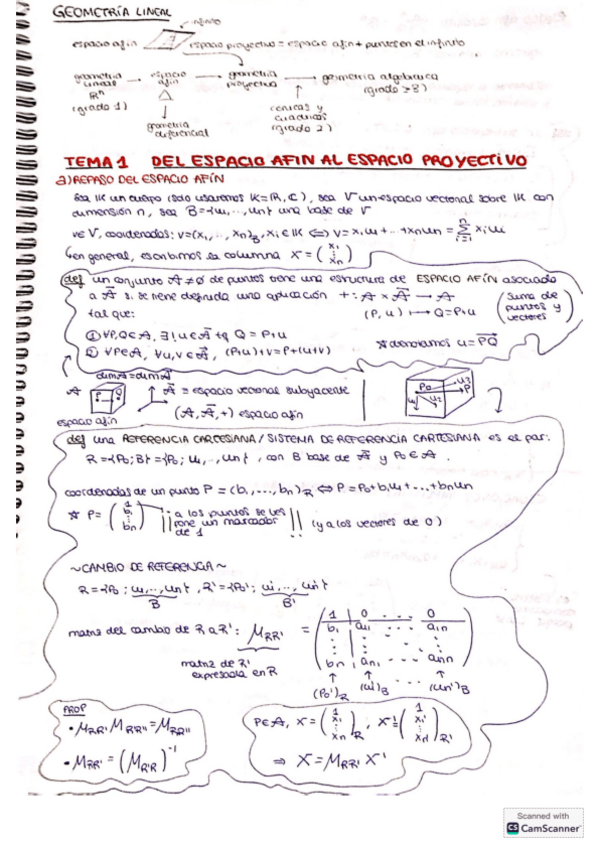 GEOMETRÍA LINEAL
infinito
espacio afín
espacio proyectivo = espacio afín + puntos en el infinito
geometría lineal ℝⁿ (grado 1) → espacio afín → geometría proyectiva → geometría algebraica (grado ≥3)
geometría diferencial
cónicas y cuádricas (grado 2)
TEMA 1 DEL ESPACIO AFÍN AL ESPACIO PROYECTIVO
a) REPASO DEL ESPACIO AFÍN
Sea K un cuerpo (solo usaremos K=ℝ,ℂ), sea V un espacio vectorial sobre K con
dimensión n, sea B={u₁,...,uₙ} una base de V
v∈V, coordenadas: v=(x₁,..., xₙ)_B, xᵢ∈K ⟺ v=x₁u₁+...+xₙuₙ = Σ_{i=1}^{n} xᵢuᵢ
↳ en general, escribimos la columna X=(x₁ ⋮ xₙ)
def un conjunto A≠∅ de puntos tiene una estructura de ESPACIO AFÍN asociado
a A⃗ si se tiene definida una aplicación +: A × A⃗ → A
(suma de puntos y vectores)
tal que: (P,u) ↦ Q=P+u
① ∀P,Q∈A, ∃!u∈A⃗ tq Q=P+u
② ∀P∈A, ∀u,v∈A⃗, (P+u)+v=P+(u+v)
* denotamos u=PQ⃗
dim A = dim A⃗
A
P Q
A⃗ = espacio vectorial subyacente
espacio afín
(A, A⃗, +) espacio afín
P₀ u₃ P u₁ u₂
def una REFERENCIA CARTESIANA / SISTEMA DE REFERENCIA CARTESIANA es el par:
R={P₀;B}={P₀; u₁,..,uₙ}, con B base de A⃗ y P₀∈A.
coordenadas de un punto P=(b₁,...,bₙ)_R ⟺ P=P₀+b₁u₁+...+bₙuₙ
* P=(1 b₁ ⋮ bₙ) ¡¡ a los puntos se les pone un marcador de 1 !! (y a los vectores de 0)
~CAMBIO DE REFERENCIA~
R={P₀; u₁,..,uₙ}, R'={P₀'; u₁',..,uₙ'}
B B'
matriz del cambio de R a R': M_RR' = (1 0 ... 0
b₁ a₁₁ ... a₁ₙ
⋮ ⋮ ⋮
bₙ aₙ₁ ... aₙₙ)
matriz de R' expresada en R
↑ ↑ ↑
(P₀')_R (u₁')_B (uₙ')_B
PROP
• M_RR' M_R'R'' = M_RR''
• M_RR' = (M_R'R)⁻¹
P∈A, X=(1 x₁ ⋮ xₙ)_R, X'=(1 x₁' ⋮ xₙ')_R'
⇒ X=M_RR' X'
Scanned with
CS CamScanner